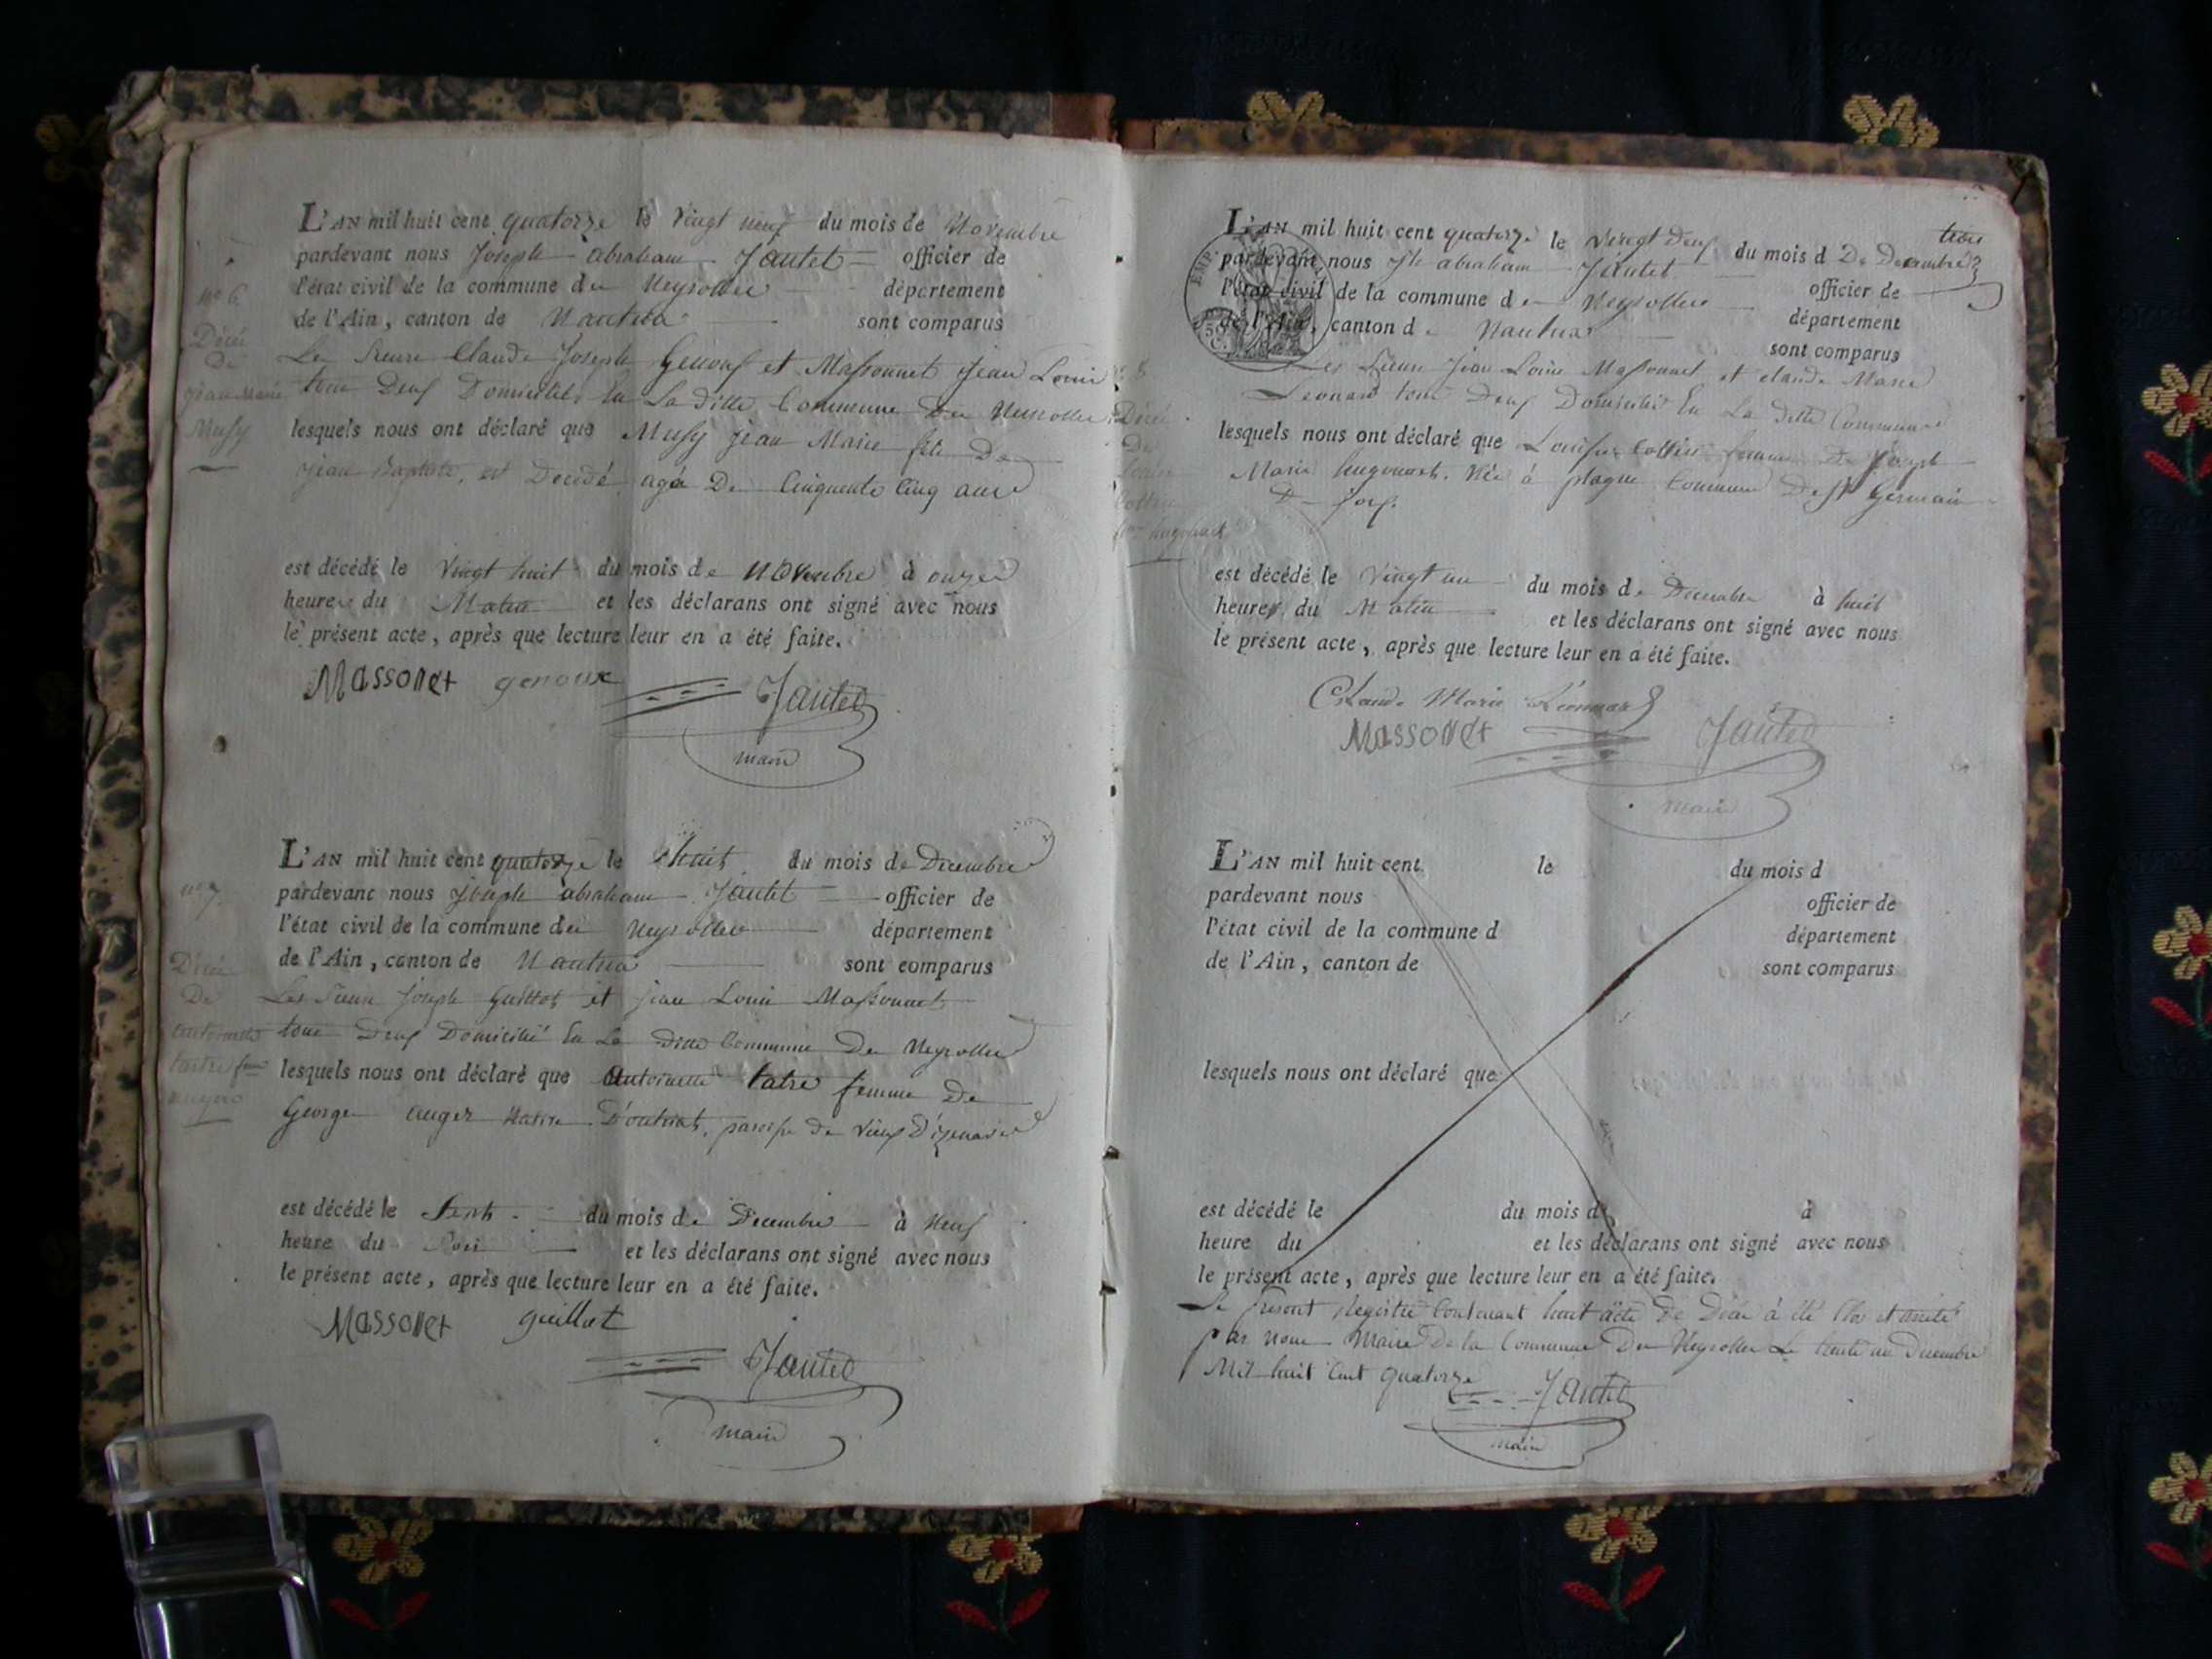 L'AN mil huit cent quatorze le vingt neuf du mois de Novembre
pardevant nous Joseph abraham Jantet officier de
l'état civil de la commune des Neyrolles département
de l'Ain, canton de Nantua sont comparus
Les Sieurs Claude Joseph Genoux et Massonnet Jean Louis
tous Deux Domiciliés En La ditte Commune Des Neyrolles
lesquels nous ont déclaré que Musy jean Marie fils De
jean Baptiste, est Decedé agé De Cinquente Cinq ans
est décédé le vingt huit du mois de Novembre à onze
heures du Matin et les déclarans ont signé avec nous
le présent acte, après que lecture leur en a été faite.
Massonet genoux Jantet
maire
n° 6
Décé
De
jean Marie
Musy
L'AN mil huit cent quatorze le huit du mois de Decembre
pardevant nous Joseph abraham Jantet officier de
l'état civil de la commune des Neyrolles département
de l'Ain, canton de Nantua sont comparus
Les Sieurs Joseph Guillot et jean Louis Massonnet
tous Deux Domicilié En La Ditte Commune Des Neyrolles
lesquels nous ont déclaré que Antoinette tatre femme De
George auger Native D'outriat, paroisse de Vieux D'izenave
est décédé le Sept du mois de Decembre à Neuf
heure du Soir et les déclarans ont signé avec nous
le présent acte, après que lecture leur en a été faite.
Massonet guillot
Jantet
maire
n° 7
Décé
De
antoinette
L'AN mil huit cent quatorze le vingt Deux du mois d De Decembre
pardevant nous Jh abraham Jantet officier de
l'état civil de la commune des Neyrolles département
de l'Ain, canton de Nantua sont comparus
Les Sieurs Jean Louis Massonnet et claude Marie
Leonard tous Deux Domiciliés En La ditte Commune
lesquels nous ont déclaré que Louise Cottin femme De Joseph
Marie hugonnet. Née à plagne Commune De St Germain
De Joux.
est décédé le vingt un du mois de Decembre à huit
heures du Matin et les déclarans ont signé avec nous
le présent acte, après que lecture leur en a été faite.
Claude Marie Léonard
Massonet Jantet
maire
8
Décé
De
L'AN mil huit cent le du mois d
pardevant nous officier de
l'état civil de la commune d département
de l'Ain, canton de sont comparus
lesquels nous ont déclaré que
est décédé le du mois d à
heure du et les déclarans ont signé avec nous
le présent acte, après que lecture leur en a été faite.
Le Present Registre Contenant huit acte De Décé à été Clos et arrêté
par nous Maire De la Commune Des Neyrolles Le trente un Decembre
Mil huit Cent quatorze Jantet
maire